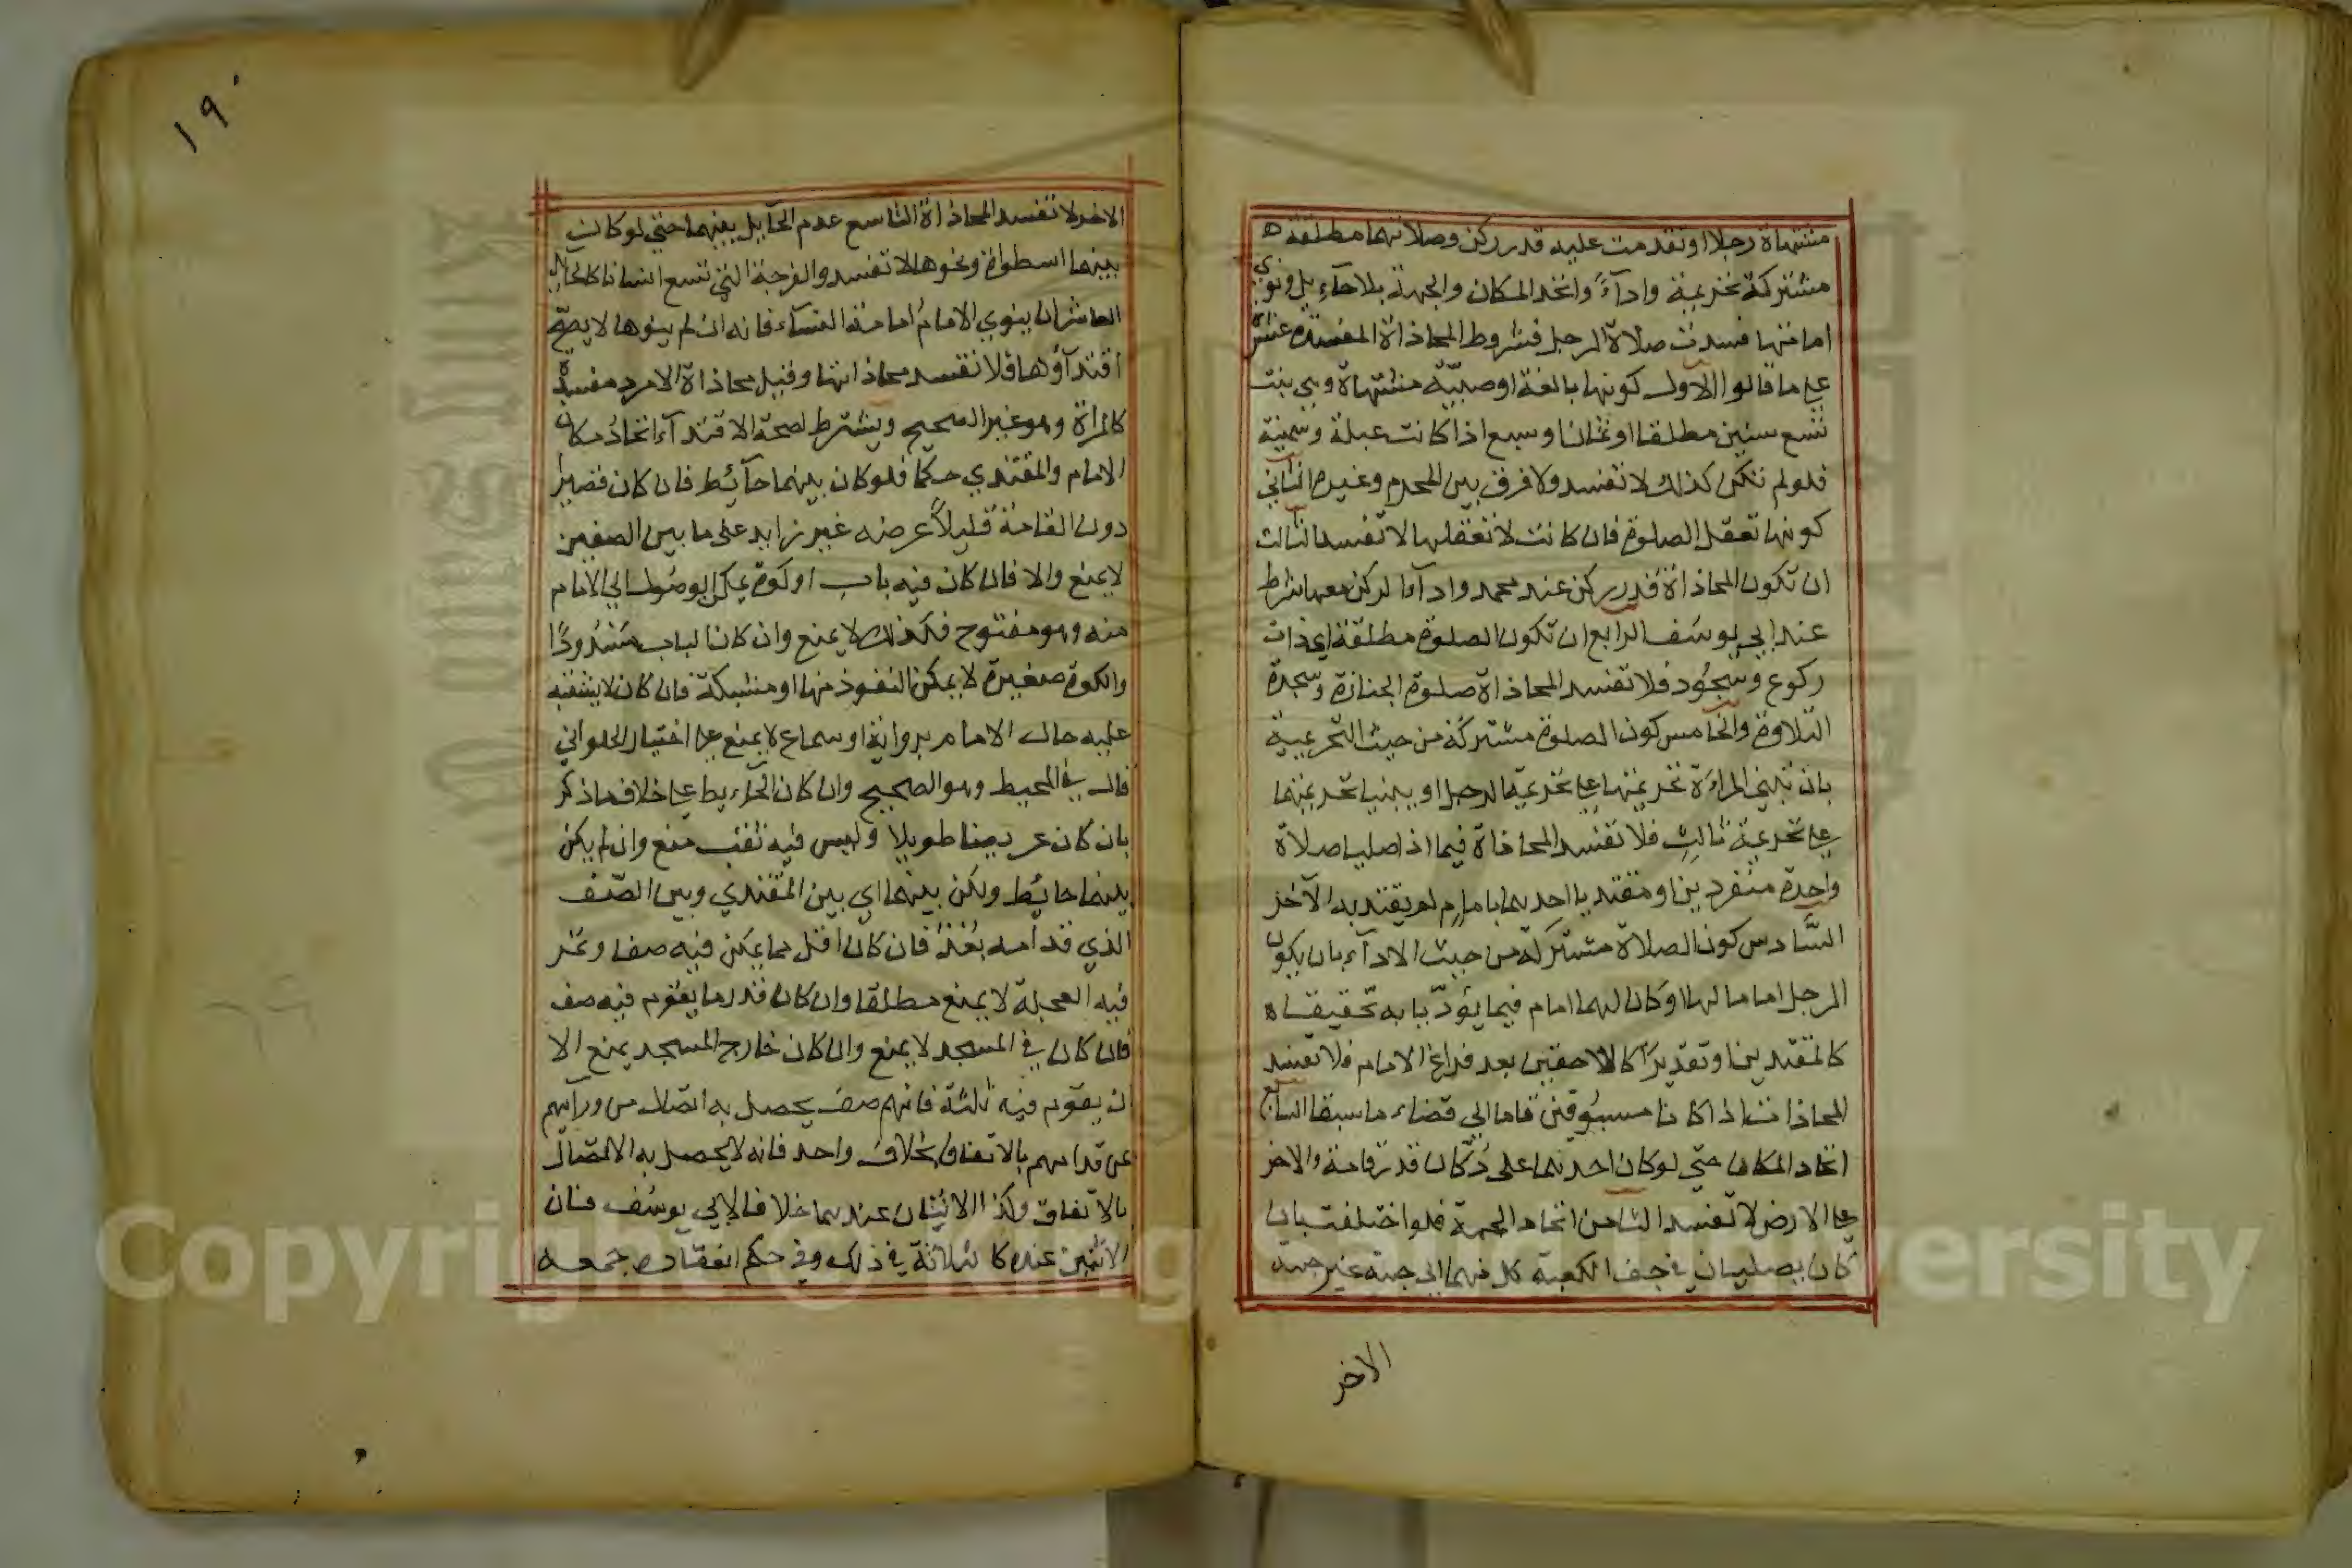 مشتهاة رجلا او تقدمت عليه قدر ركن وصلاتهما مطلقة ه
مشتركة تحريمة وادآءً واتحد المكان والجهة بلا حآءيل ونوي
امامتها فسدت صلاة الرجل فشروط المحاذاة المفسدة عشرة
علي ما قالوا الاول كونها بالغة او صبيّة مشتهاة وهي بنت
تسع سنين مطلقا او ثمان او سبع اذا كانت عبلة وسمينة
فلو لم تكن كذلك لا تفسد ولا فرق بين المحرم وغيره الثاني
كونها تعقل الصلوة فان كانت لا تعقلها لا تفسد الثالث
ان تكون المحاذاة قدر ركن عند محمد وادآء الركن معها شرط
عند ابي يوسف الرابع ان تكون الصلوة مطلقة اي ذات
ركوع وسجود فلا تفسد المحاذاة صلوة الجنازة وسجدة
التلاوة والخامس كون الصلوة مشتركة من حيث التحريمية
بان تبني المراءة تحريمتها علي تحريمة الرجل او يبنيا تحريمتهما
علي تحريمة ثالث فلا تفسد المحاذاة فيما اذا صليا صلاة
واحدة منفردين او مقتديا احدهما بامام لم يقتد به الآخر
السّادس كون الصلاة مشتركة من حيث الادآء بان يكون
الرجل اماما لها او كان لهما امام فيما يؤدّيا به تحقيقا ه
كالمقتدين او تقديرًا كاللاحقين بعد فراغ الامام فلا تفسد
المحاذات اذا كانا مسبوقين قاما الي قضاء ما سبقا السابع
اتحاد المكان حتي لو كان احدهما علي دُكّان قدر قامة والاخر
علي الارض لا تفسد الثامن اتحاد الجهة فلو اختلفت بان
كان يصليان في جوف الكعبة كل منهما الي جهة غير جهة
الاخر
١٩٠
الاخر لا تفسد المحاذاة التاسع عدم الحآيل بينهما حتي لو كان
بينهما اسطوانة ونحوها لا تفسد والفرجة التي تسع انسانا كالحايل
العاشر ان ينوي الامامُ امامة النسآء فانه ان لم ينوها لا يصحّ
اقتدآؤها فلا تفسد محاذاتها وقيل محاذاة الامرد مفسدة
كالمراة وهو غير الصحيح ويشترط لصحة الاقتدآء اتحادُ مكان
الامام والمقتدي حكما فلو كان بينهما حآئط فان كان قصيرا
دون القامة قليلاً عرضه غير زايد علي ما بين الصفين
لا يمنع والا فان كان فيه باب او كوة يمكن الوصول الي الامام
منه وهو مفتوح فكذلك لا يمنع وان كان الباب مسْدُودًا
والكوة صغيرة لا يمكن النفوذ منها او مشبكة فان كان لا يشتبه
عليه حال الامام برواية او سماع لا يمنع علي اختيار الحلواني
قال في المحيط وهو الصحيح وان كان الحآءيط علي خلاف ما ذكر
بان كان عريضا طويلا وليس فيه ثقب منع وان لم يكن
بينهما حائط ولكن بينهما اي بين المقتدي وبين الصّف
الذي قدامه بُعْدٌ فان كان اقل مما يمكن فيه صف او تمر
فيه العجلة لا يمنع مطلقا وان كان قدر ما يقوم فيه صف
فان كان في المسجد لا يمنع وان كان خارج المسجد يمنع الا
ان يقوم فيه ثلثة فانهم صف يحصل به اتصال من ورآيهم
عن قدامهم بالاتفاق بخلاف واحد فانه لا يحصل به الاتصال
بالاتفاق وكذا الاثنان عندهما خلافا لابي يوسف فان
الاثنين عنده كالثلاثة في ذلك وفي حكم انعقاد جمعه
Copyright © King University